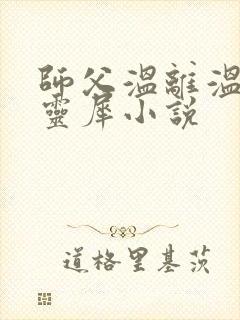 師父溫離溫
靈犀小說
道格里基茨